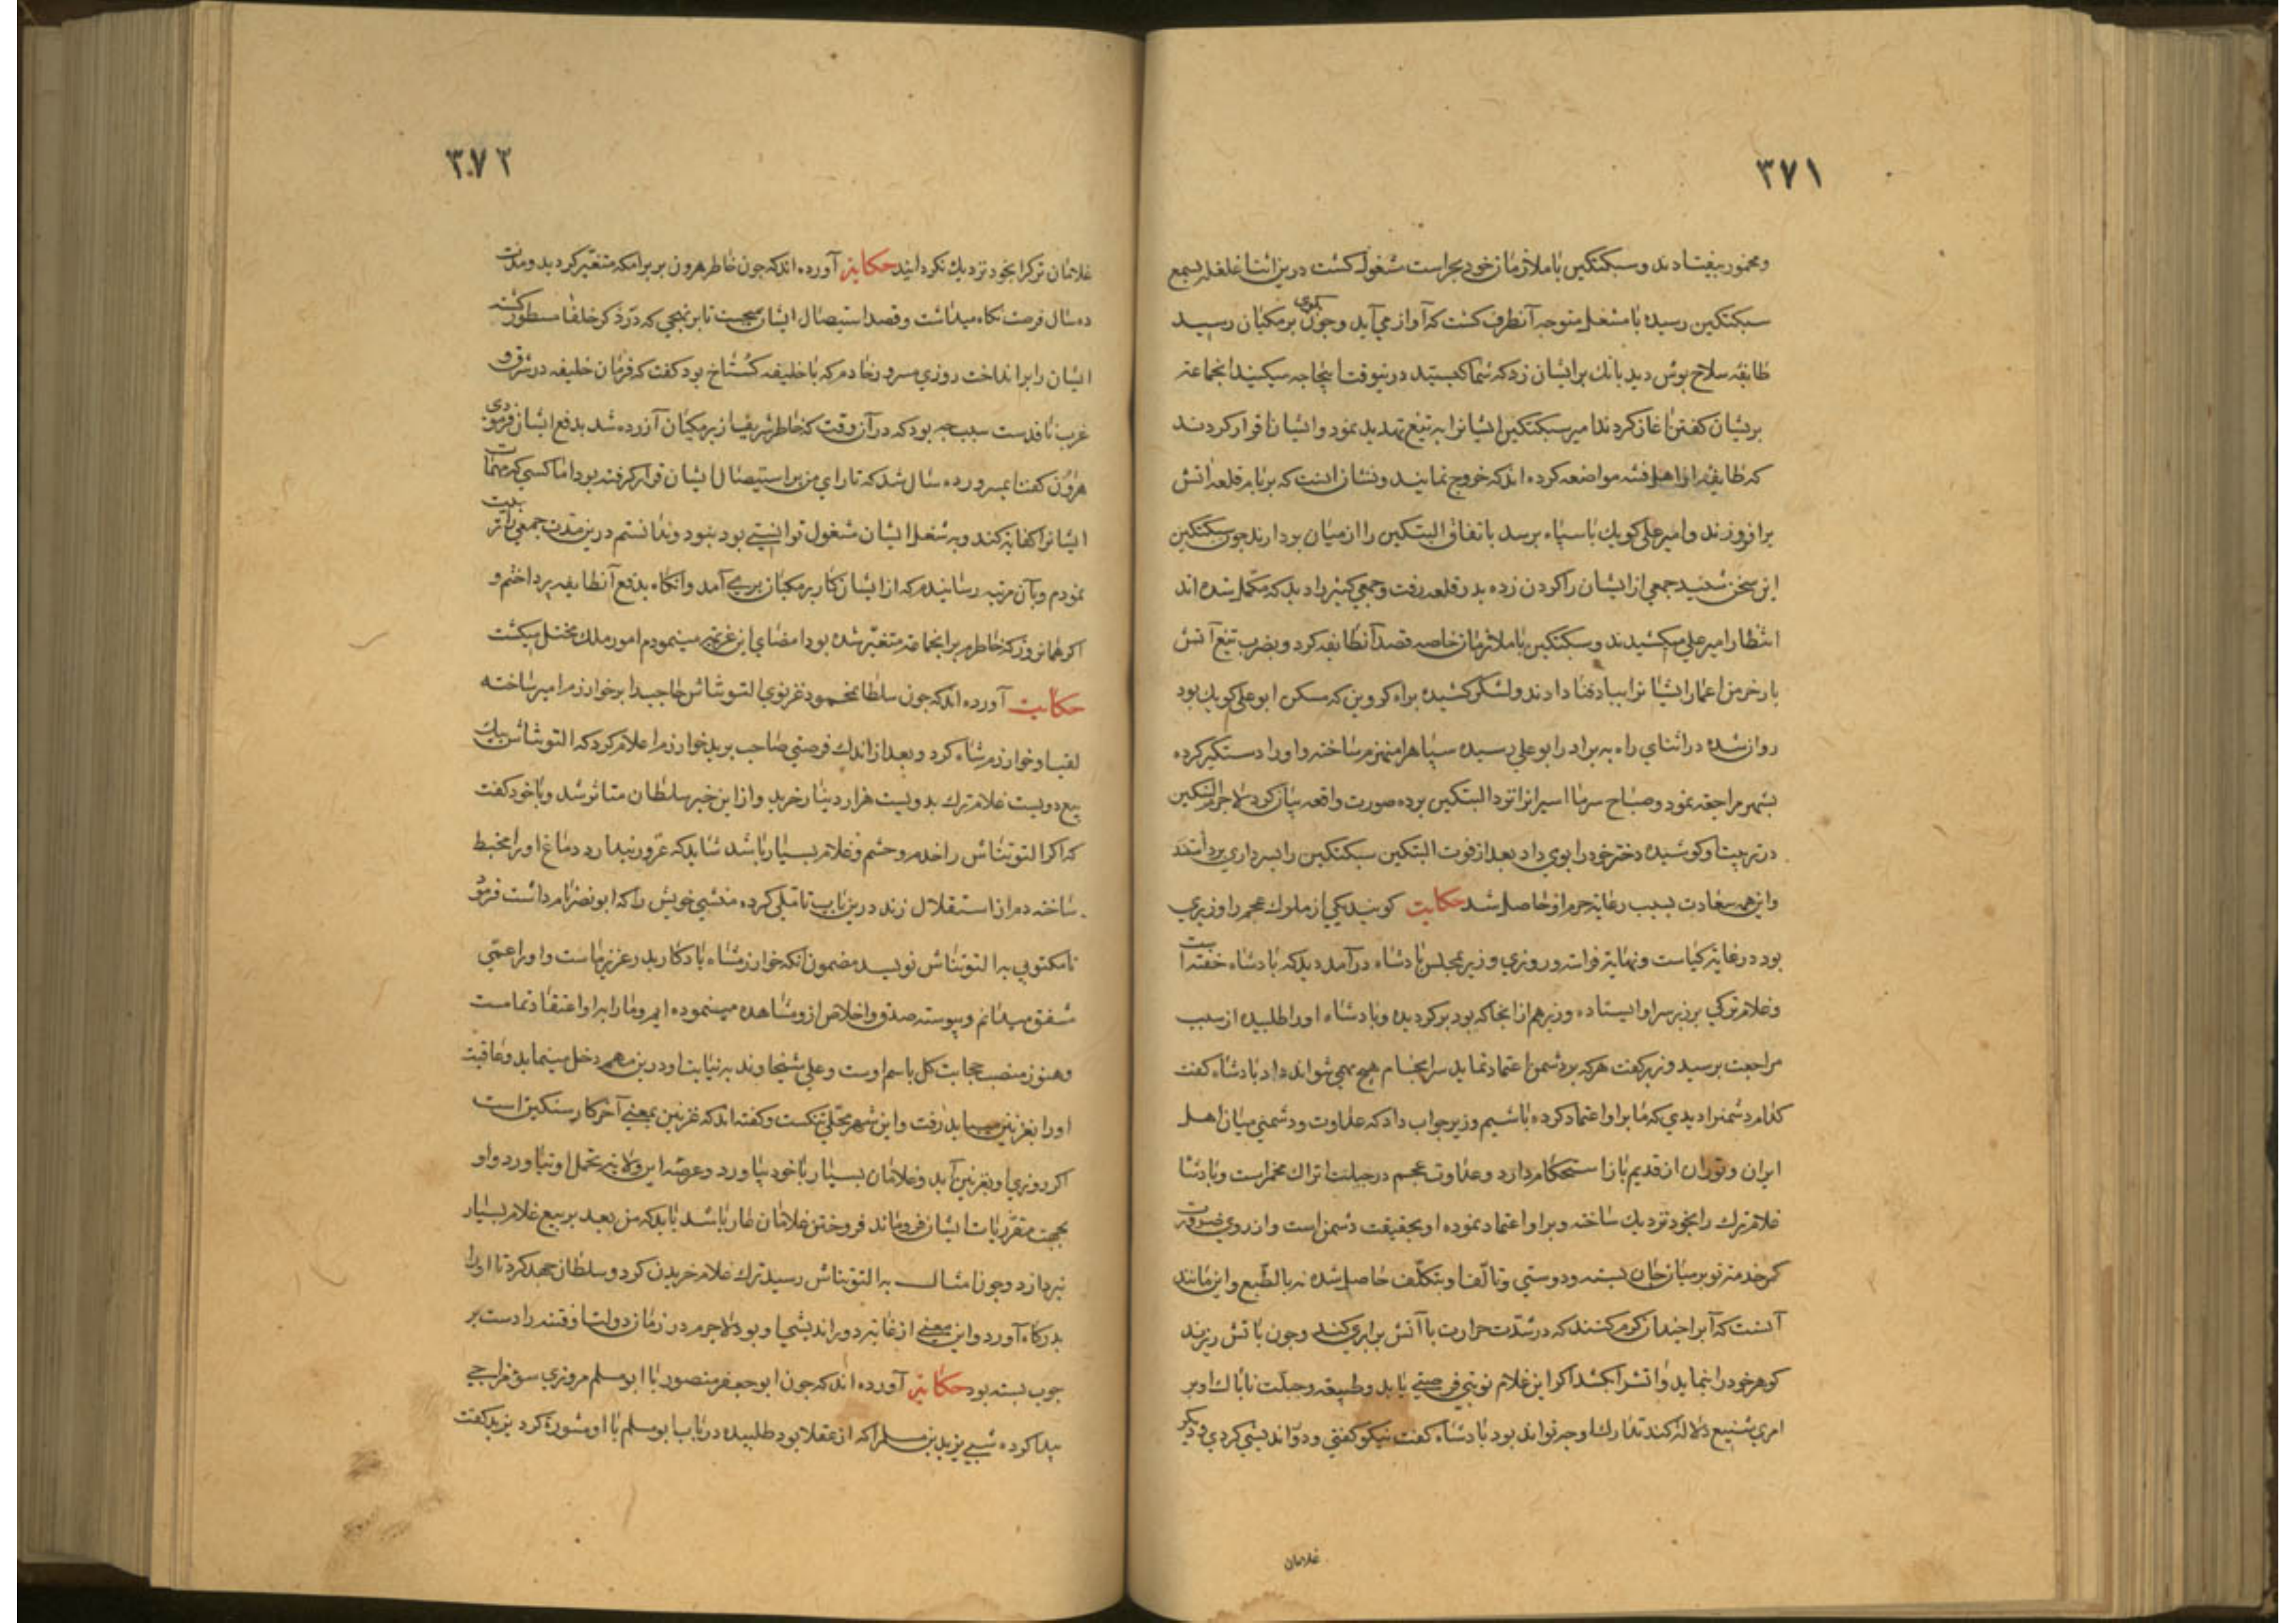 ٣٧١
ومخمور بیفتادند وسبکتکین با ملازمان خود بحراست مشغول کشت درین اثنا غلغله بسمع
سبکتکین رسیده با مشعله متوجه آنطرف کشت که آواز می آید وچون بکوی برمکیان رسید
طایفه سلاح پوش دید بانک بر ایشان زد که شما کیستید درینوقت اینجا چه میکنید انجماعه
پریشان کفتن آغاز کردند امیر سبکتکین ایشانرا به تیغ تهدید نمود وایشان اقرار کردند
که طایفه از اهل فتنه مواضعه کرده اند که خروج نمایند ونشان انست که بر بام قلعه آتش
برافروزند وامیر علی کوبك با سپاه برسد باتفاق البتکین را از میان بردارند چون سبکتکین
این سخن شنید جمعی از ایشان را کردن زده بدر قلعه رفت وجمعی کثیر را دید که مکمل شده اند
انتظار امیر علی میکشیدند وسبکتکین با ملازمان خاصه قصد آنطایفه کرد وبضرب تیغ آتش
بار خرمن اعمار ایشانرا بباد فنا دادند ولشکر کشیده براه کروین که مسکن ابو علی کوبك بود
روان شده در اثنای راه به برادر ابو علی رسیده سپاهرا منهزم ساخته واورا دستکیر کرده
بشهر مراجعه نمود وصباح سرها اسیرانرا نزد البتکین برده صورت واقعه بیان کرد لاجرم البتکین
در تربیت او کوشیده دختر خود را بوی داد بعد از فوت البتکین سبکتکین را بسرداری برداشتند
واین همه سعادت بسبب رعایة حرم او حاصل شد حکایت کویند یکی از ملوك عجم را وزیری
بود در غایة کیاست ونهایة فراسة وروزی وزیر بمجلس پادشاه درآمد دید که پادشاه خفته است
وغلام ترکی بر زبر سر او ایستاده وزیر هم از انجا که بود برکردیده وپادشاه اورا طلبیده از سبب
مراجعت پرسید وزیر کفت هرکه بر دشمن اعتماد نماید سرانجام هیچ مهمی نتواند داد پادشاه کفت
کدام دشمنرا دیدی که ما برا و اعتماد کرده باشیم وزیر جواب داد که عداوت ودشمنی میان اهل
ایران وتوران از قدیم باز استحکام دارد وعداوت عجم در جبلت اتراك مخمر است وپادشا
غلام ترك را بخود نزدیك ساخته وبراو اعتماد نموده او بحقیقت دشمن است واز روی ضرورت
کمر خدمت تو بر میان جان بسته ودوستی وتالف او بتکلف حاصل شده نه بالطبع واین مانند
آنست که آبرا چندان کرم کنند که در شدت حرارت با آتش برابری کند وچون با تش ریزند
کوهر خود را بنماید واتشرا بکشد اکر این غلام نوبتی فرصتی یابد وطبیعه وجبلت ناپاك اوبر
امری شنیع دلالة کند تدارك او چه تواند بود پادشاه کفت نیکو کفتی ودور اندیشی کردی ودیکر
غلامان
٣٧٢
غلامان ترکرا بخود نزدیك نکردانید حکایة آورده اند که چون خاطر هرون بر برامکه متغیر کردید ومدت
ده سال فرصت نکاه میداشت وقصد استیصال ایشان میجست تا بر نهجی که در ذکر خلفا مسطور کشته
ایشان را برانداخت روزی مسرور خادم که با خلیفه کستاخ بود کفت که فرمان خلیفه در شرق و
غرب نافدست سبب چه بود که در آن وقت که خاطر شریف از برمکیان آزرده شد بدفع ایشان فرمودی
هرون کفت ایمسرور ده سال شد که تا رای من بر استیصال ایشان قرار کرفته بود اما کسی که مهمات
ایشانرا کفایة کند وبه شغل ایشان مشغول توانستی بود نبود وندانستم درین مدت جمعی را تربیت
نمودم وبآن مرتبه رسانیدم که از ایشان کار برمکیان برمی آمد وانکاه بدفع آنطایفه پرداختم و
اکر همانروز که خاطرم بر انجماعة متغیر شده بود امضای این عزیمة مینمودم امور ملك مختل میکشت
حکایت آورده اند که چون سلطان محمود غزنوی التونتاش حاجب را بر خوارزم امیر ساخته
لقب او خوارزمشاه کرد وبعد از اندك فرصتی صاحب برید خوارزم اعلام کرد که التونتاش بیك
بیع دویست غلام ترك بدویست هزار دینار خرید واز این خبر سلطان متاثر شد وبا خود کفت
که اکر التونتاش را خدم وحشم وغلام بسیار باشد شاید که غرور پندار در دماغ اورا مخبط
ساخته دم از استقلال زند درین باب تاملی کرده منشی خویش را که ابو نصر نام داشت فرمود
تا مکتوبی به التونتاش نویسد مضمون انکه خوارزمشاه یادکار پدر عزیز ماست واورا عمی
مشفق میدانم وپیوسته صدق واخلاص از ومشاهده مینموده ایم ومارا براو اعتقاد تمامست
وهنوز منصب حجابت کل باسم اوست وعلی شیخاوند به نیابت او درین مهم دخل مینماید وعاقبت
اورا بغزنین میباید رفت واین شهر محلی تنکست وکفته اند که غزنین بمعنی آخر کار سنکین است
اکر روزی او بغزنین آید وغلامان بسیار با خود بیاورد وعرصه این ولایة تحمل او نیاورد واو
بجهت مقررات ایشان فروماند فروختن غلامان عار باشد باید که من بعد بر بیع غلام بسیار
نپردازد وچون امثال به التونتاش رسید ترك غلام خریدن کرد وسلطان جهد کرد تا اورا
بدرکاه آورد واین معنی از غایة دور اندیشی او بود لاجرم در زمان دولت او فتنه را دست بر
چوب بسته بود حکایة آورده اند که چون ابو جعفر منصور با ابو مسلم مروزی سوء مزاجی
پیدا کرده شبی یزید بن مسلم را که از عقلا بود طلبیده در باب ابو مسلم با او مشورة کرد یزید کفت